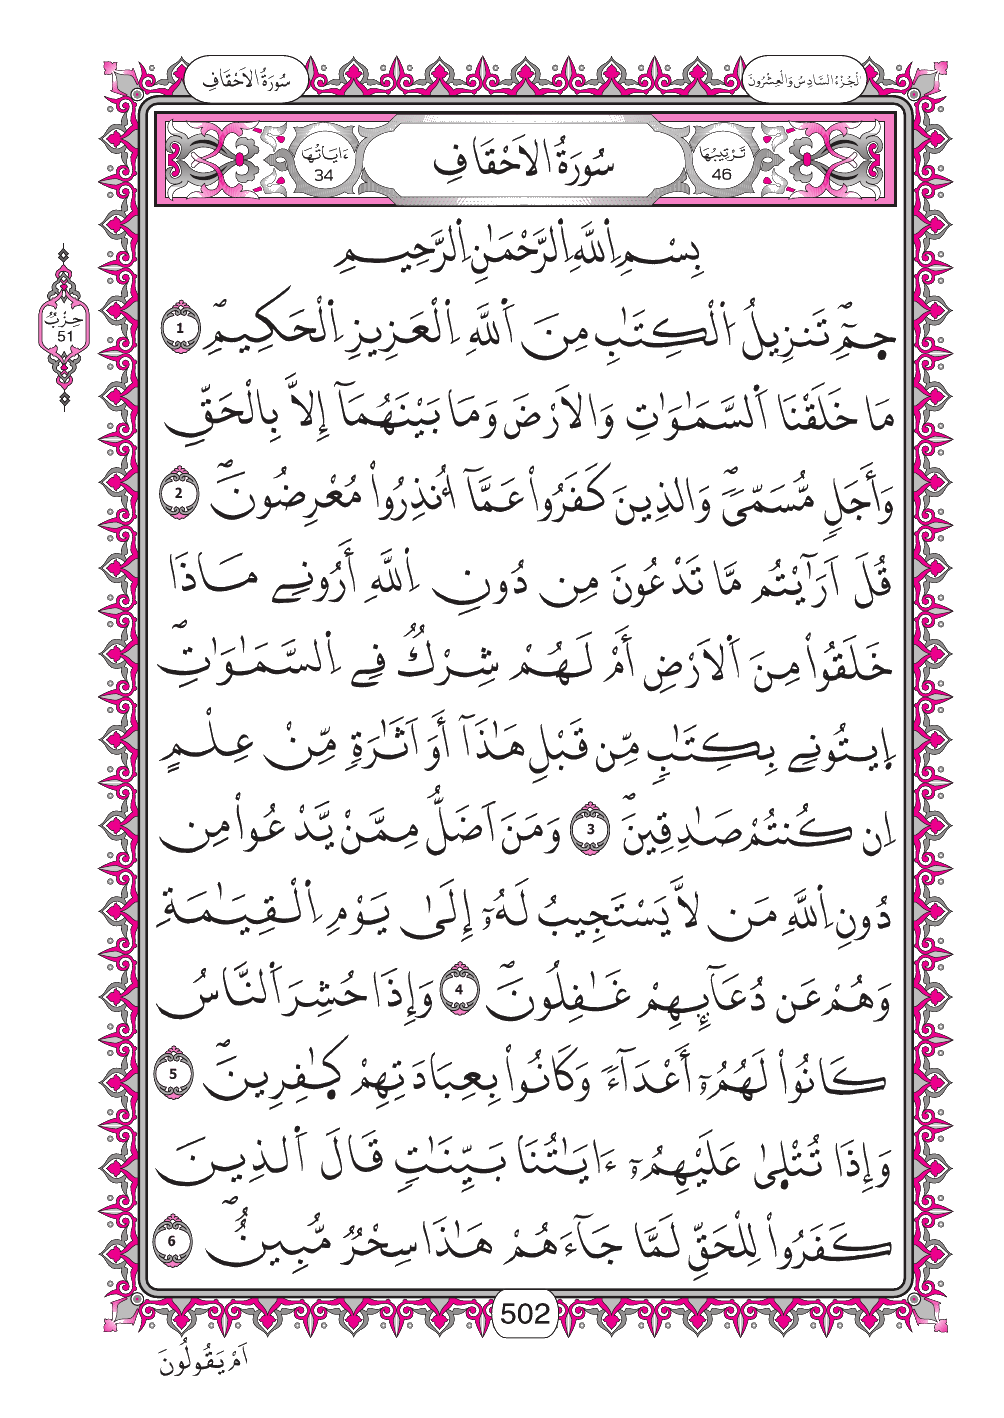 الجُزْءُ السَّادِسُ وَالْعِشْرُونَ
سُورَةُ الاَحْقَافِ
تَرْتِيبُهَا
46
سُورَةُ الاَحْقَافِ
ءَايَاتُهَا
34
بِسْمِ اِللَّهِ اِلرَّحْمَٰنِ اِلرَّحِيمِ
حِزْبٌ
51
جمِٓۖ تَنزِيلُ اُلْكِتَٰبِ مِنَ اَللَّهِ اِلْعَزِيزِ اِلْحَكِيمِۖ 1
مَا خَلَقْنَا اَلسَّمَٰوَٰتِ وَالاَرْضَ وَمَا بَيْنَهُمَآ إِلاَّ بِالْحَقِّ
وَأَجَلٖ مُّسَمّىٗۖ وَالذِينَ كَفَرُواْ عَمَّآ أُنذِرُواْ مُعْرِضُونَۖ 2
قُلَ اَرَٰٓيْتُم مَّا تَدْعُونَ مِن دُونِ اِللَّهِ أَرُونِے مَاذَا
خَلَقُواْ مِنَ اَلاَرْضِ أَمْ لَهُمْ شِرْكٞ فِے اِلسَّمَٰوَٰتِۖ
اِيتُونِے بِكِتَٰبٖ مِّن قَبْلِ هَٰذَآ أَوَ اَثَٰرَةٖ مِّنْ عِلْمٍ
اِن كُنتُمْ صَٰدِقِينَۖ 3 وَمَنَ اَضَلُّ مِمَّنْ يَّدْعُواْ مِن
دُونِ اِللَّهِ مَن لاَّ يَسْتَجِيبُ لَهُۥٓ إِلَىٰ يَوْمِ اِلْقِيَٰمَةِ
وَهُمْ عَن دُعَآئِهِمْ غَٰفِلُونَۖ 4 وَإِذَا حُشِرَ اَلنَّاسُ
كَانُواْ لَهُمُۥٓ أَعْدَآءٗ وَكَانُواْ بِعِبَادَتِهِمْ كَٰفِرِينَۖ 5
وَإِذَا تُتْلَىٰ عَلَيْهِمُۥٓ ءَايَٰتُنَا بَيِّنَٰتٖ قَالَ اَلذِينَ
كَفَرُواْ لِلْحَقِّ لَمَّا جَآءَهُمْ هَٰذَا سِحْرٞ مُّبِينٌۖ 6
502
اَمْ يَقُولُونَ